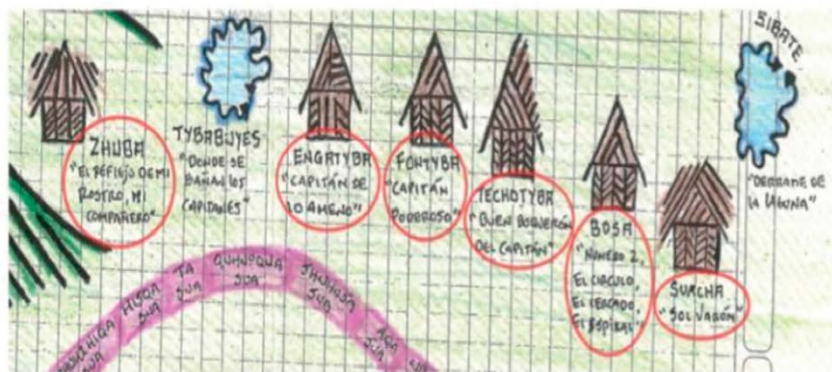 ZHUBA
"EL REFLEJO DE MI
ROSTRO, MI
COMPAÑERO"
TYBABUYES
"DONDE SE
BAÑAN LOS
CAPITANES"
ENGATYBA
"CAPITÁN DE
LO AMENO"
FONTYBA
"CAPITÁN
PODEROSO"
TECHOTYBA
"BUEN BOQUERÓN
DEL CAPITÁN"
BOSA
"NÚMERO 2,
EL CIRCULO,
EL CERCADO,
EL ESPIRAL"
SUACHA
"SOL VARÓN"
SIBATE
"DERRAME DE
LA LAGUNA"
SUA
TA
SUA
QUHUPQUA
SUA
SHUHUSA
SUA
ACA
SUA